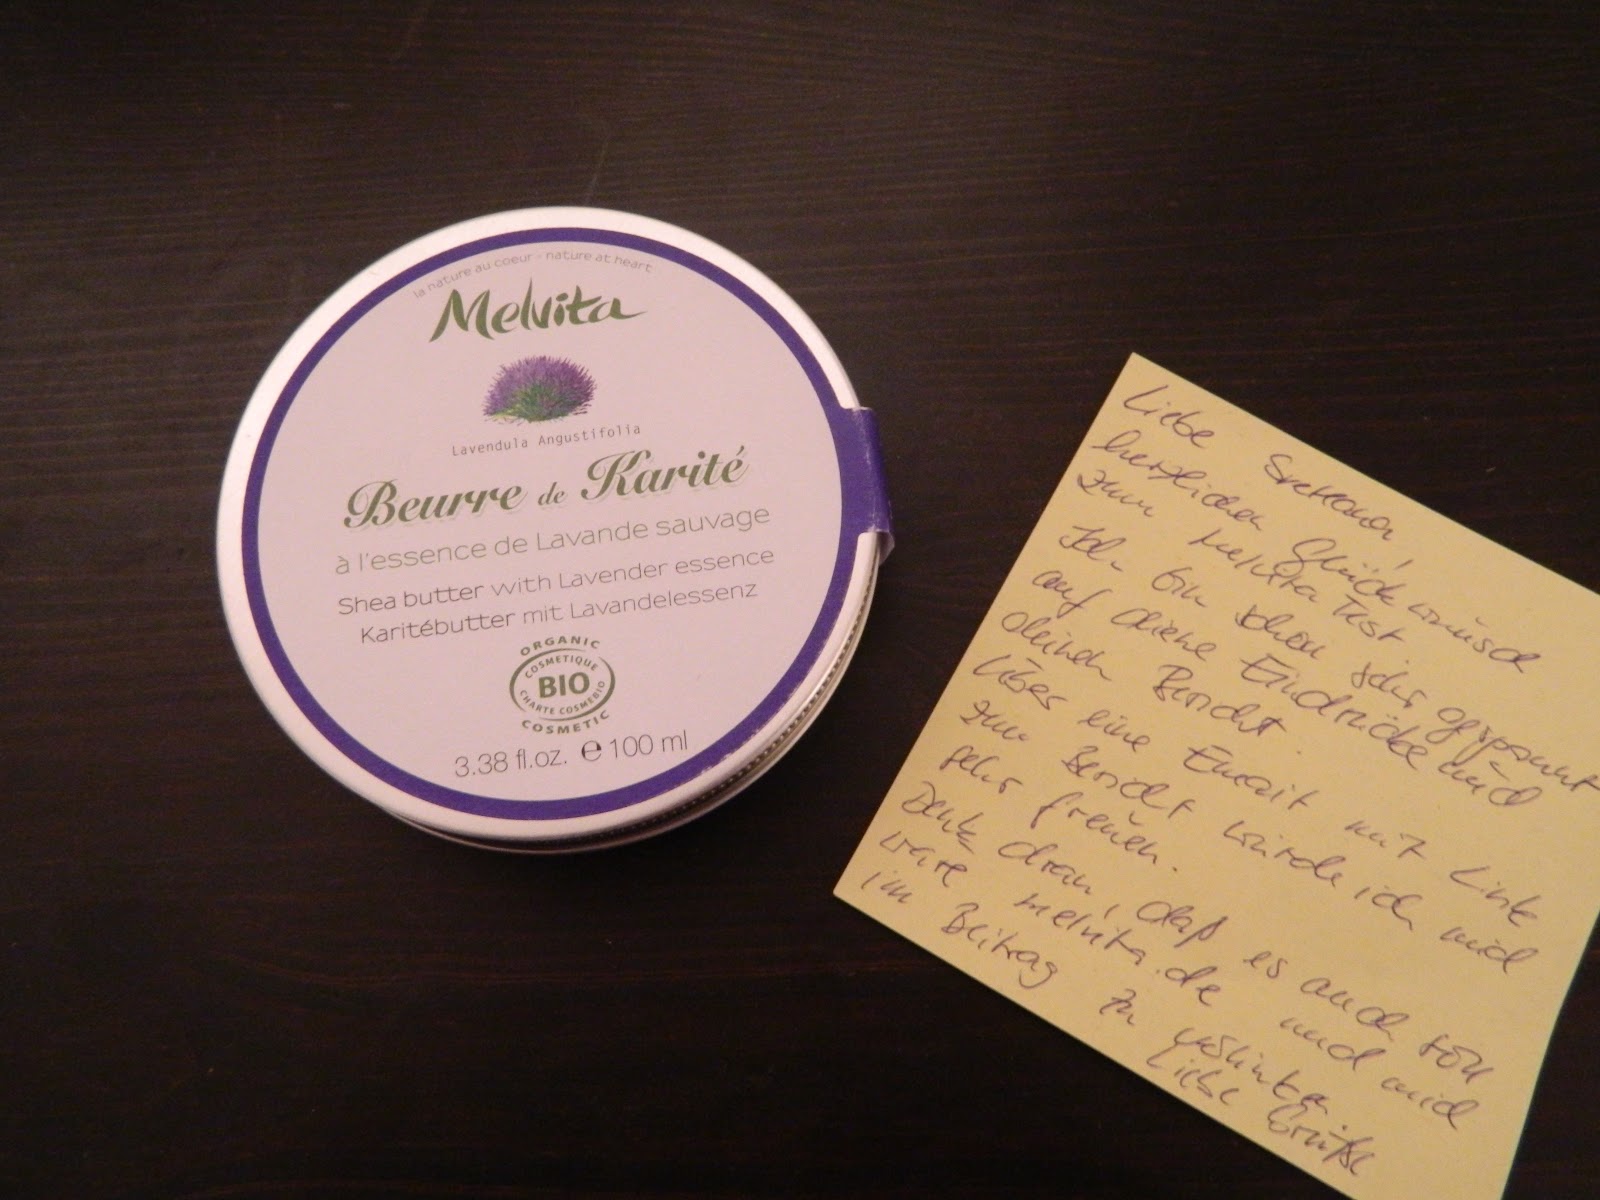 la nature au coeur - nature at heart
Melvita
Lavendula Angustifolia
Beurre de Karité
à l'essence de Lavande sauvage
Shea butter with Lavender essence
Karitébutter mit Lavandelessenz
ORGANIC
COSMETIQUE
BIO
CHARTE COSMEBIO
COSMETIC
3.38 fl.oz. e 100 ml
Liebe
herzlichen Glückwunsch
zum Melvita Test
Ich bin schon sehr gespannt
auf deine Eindrücke und
deinen Bericht.
Über eine Email mit Link
zum Bericht würde ich mich
sehr freuen.
Denk dran, daß es auch toll
wäre melvita.de und mich
im Beitrag zu verlinken
Liebe Grüße